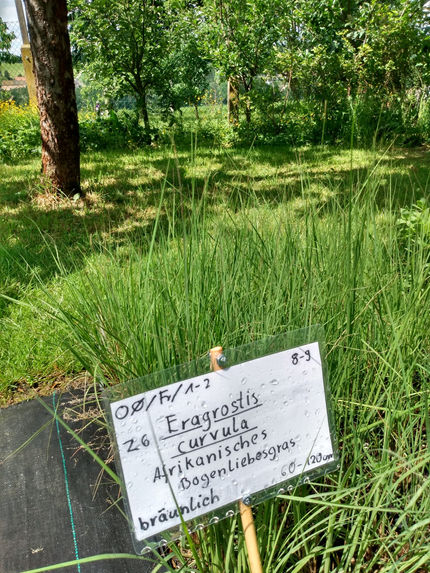 OØ/Fr/1-2 8-9
Z6 Eragrostis
curvula
Afrikanisches
Bogenliebesgras
bräunlich 60-120cm